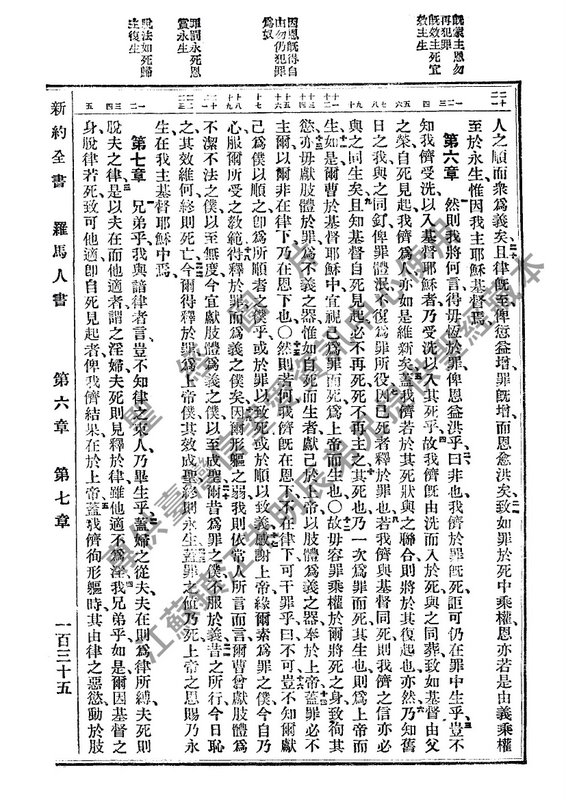 既蒙主恩勿
再犯罪
既效主死宜
效主生
因恩既得自
由勿仍犯罪
爲奴
罪罰永死恩
賞永生
脫法如死歸
主復生
人之順而衆爲義矣且律旣至俾愆益增罪旣增而恩愈洪矣致如罪於死中乘權恩亦若是由義乘權
至於永生惟因我主耶穌基督焉
第六章 然則我將何言得毋恆於罪俾恩益洪乎曰非也我儕於罪旣死詎可仍在罪中生乎豈不
知我儕受洗以入基督耶穌者乃受洗以入其死乎故我儕旣由洗而入於死與之同葬致如基督由父
之榮自死見起我儕爲人亦如是維新矣蓋我儕若於其死狀與之聯合則將於其復起也亦然乃知舊
日之我與之同釘俾罪體泯不復爲罪所役因已死者釋於罪也若我儕與基督同死則我儕之信亦必
與之同生矣且知基督自死見起必不再死死不再主之其死也乃一次爲罪而死其生也則爲上帝而
生如是爾曹於基督耶穌中宜視己爲罪而死爲上帝而生也〇故毋容罪乘權於爾將死之身致徇其
慾亦毋獻肢體於罪爲不義之器惟如自死而生者獻己於上帝以肢體爲義之器奉於上帝蓋罪必不
主爾以爾非在律下乃在恩下也〇然則若何我儕旣在恩下不在律下可干罪乎曰不可豈不知爾獻
己爲僕以順之卽爲所順者之僕乎或於罪以致死或於順以致義感謝上帝緣爾素爲罪之僕今自乃
心服爾所受之敎範得釋於罪而爲義之僕矣因爾形軀之弱我則依常人所言而言爾曹曾獻肢體爲
不潔不法之僕以至無度今宜獻肢體爲義之僕以至成聖爾昔爲罪之僕不服於義昔之所行今日恥
之其效維何終則死亡今爾得釋於罪而爲上帝僕其效成聖終則永生蓋罪之値乃死上帝之恩賜乃永
生在我主基督耶穌中焉
第七章 兄弟乎我與諳律者言豈不知律之束人乃畢生乎蓋婦之從夫夫在則爲律所縛夫死則
脫夫之律是以夫在而他適者謂之淫婦夫死則見釋於律雖他適不爲淫我兄弟乎如是爾因基督之
身脫律若死致可他適卽自死見起者俾我儕結果在於上帝蓋我儕徇形軀時其由律之惡慾動於肢
新約全書 羅馬人書 第六章 第七章 一百三十五